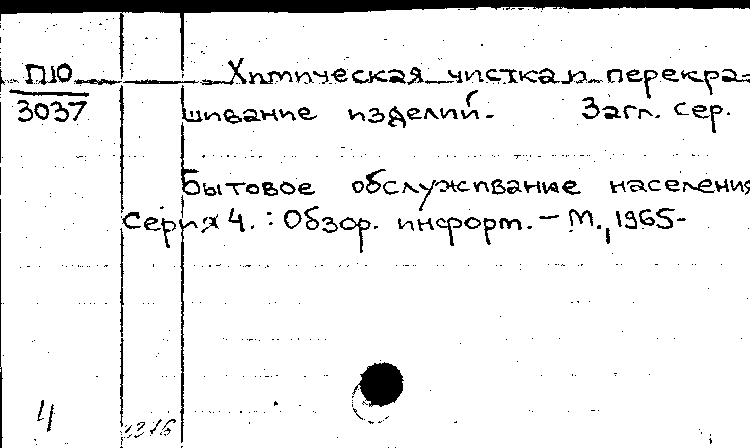 П10 Химическая чистка и перекра-
3037 шивание изделий. Загл. сер.
Бытовое обслуживание населения
Серия 4. : Обзор. информ. – М., 1965-
4